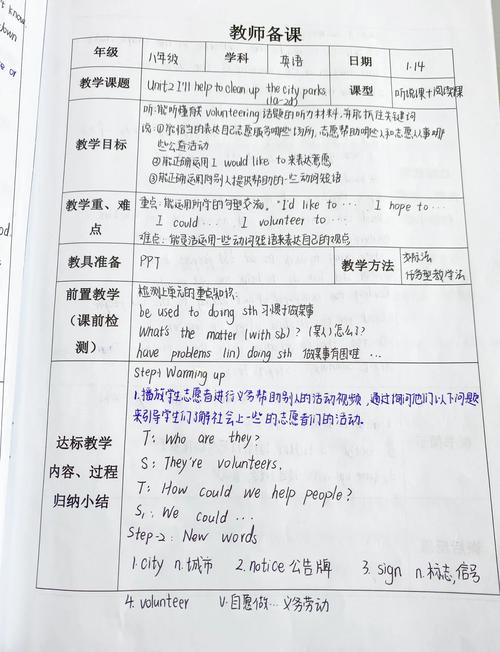 教师备课
年级 八年级 学科 英语 日期 1.14
教学课题 Unit2 I'll help to clean up the city parks 课型 听说课+阅读课
(1a-2d)
听:能听懂有关volunteering话题的听力材料,并能抓住关键词
说:①能恰当的表达自己志愿服务哪些场所,志愿帮助哪些人和志愿从事哪
些公益活动
教学目标
②能正确运用I would like to来表达意愿
③能正确运用向别人提供帮助的一些动词短语
教学重、难点
重点:能运用所学的句型交流。"I'd like to … I hope to …
I could … I volunteer to …
难点:能灵活运用一些动词短语来表达自己的观点
教具准备 PPT 教学方法 交际法
任务型教学法
前置教学(课前检测)
检测上单元的重点知识:
be used to doing sth 习惯于做某事
What's the matter (with sb)? (某人)怎么了?
have problems (in) doing sth 做某事有困难 …
达标教学内容、过程归纳小结
Step1 Warming up
1.播放学生志愿者进行义务帮助别人的活动视频,通过询问他们以下问题
来引导学生们了解社会上一些的志愿者们的活动.
T: who are they?
S: They're volunteers.
T: How could we help people?
S: We could …
Step-2: New words
1.city n.城市 2.notice 公告牌 3. sign n.标志,信号
4. volunteer v.自愿做… 义务劳动